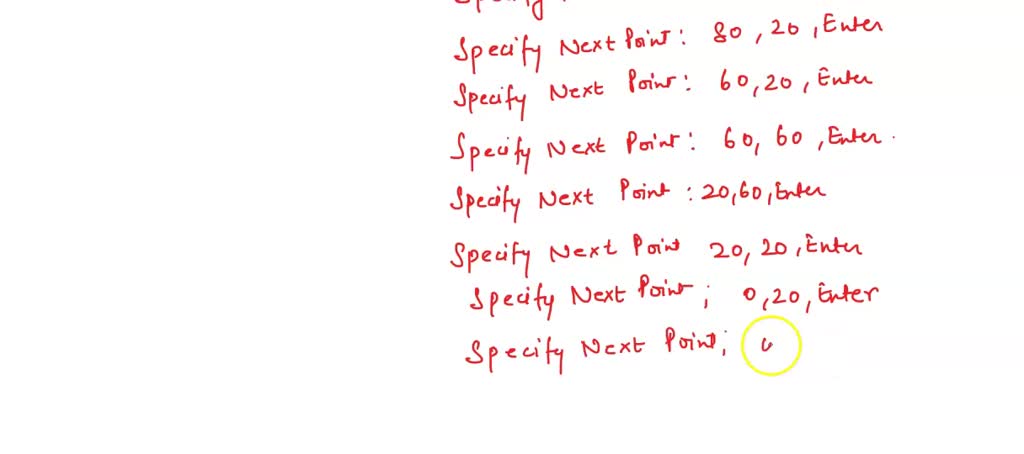 Specify Next Point: 80, 20, Enter
Specify Next Point: 60, 20, Enter
Specify Next Point: 60, 60, Enter.
Specify Next Point: 20, 60, Enter
Specify Next Point 20, 20, Enter
Specify Next Point; 0, 20, Enter
Specify Next Point;